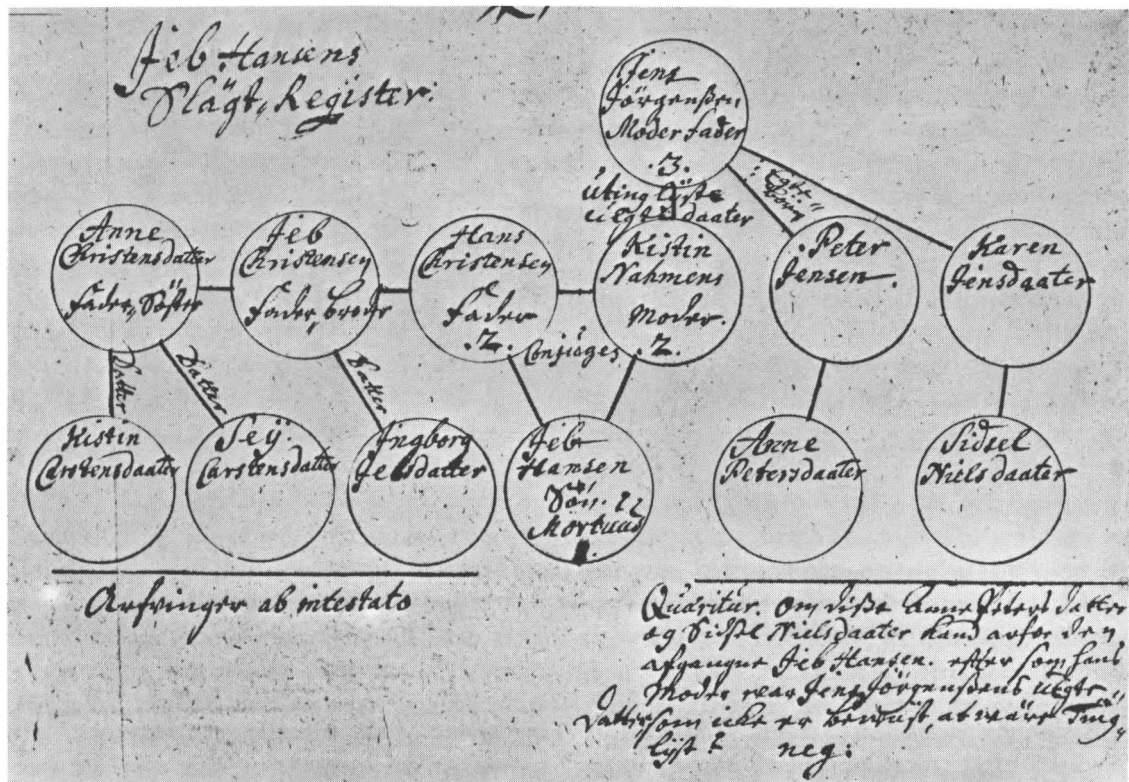 Jeb Hansens
Slägt, Register.
Jens
Jörgenßen
Moder fader
.3.
Uting lÿste
uegte daater
Anne
Christensdatter
Fader, Söster
Jeb
Christensen
Fader, broder
Hans
Christensen
Fader
.2.
Conjuges
Kistin
Nahmens
Moder.
.2.
Peter
Jensen.
Karen
Jensdaater
Datter
Datter
Datter
Kistin
Carstensdaater
Seÿ.
Carstensdatter
Ingborg
Jebsdatter
Jeb
Hansen
Sön.
Mortuus
1.
Anne
Petersdaater
Sidsel
Nielsdaater
Arfvinger ab intestato
Quäritur. om diße Anne Peters datter
og Sidßel Nielsdaater kand arfve den
afgangne Jeb Hansen. efter som hans
Moder var Jens Jörgenßens uegte
Datter som icke er bewust, at wäre Ting
lÿst? neg: